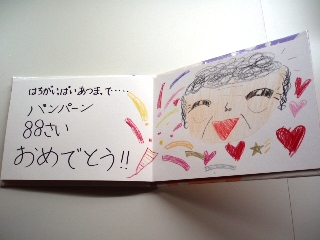 はるがいっぱいあつまって・・・・・
パンパーン
88さい
おめでとう!!